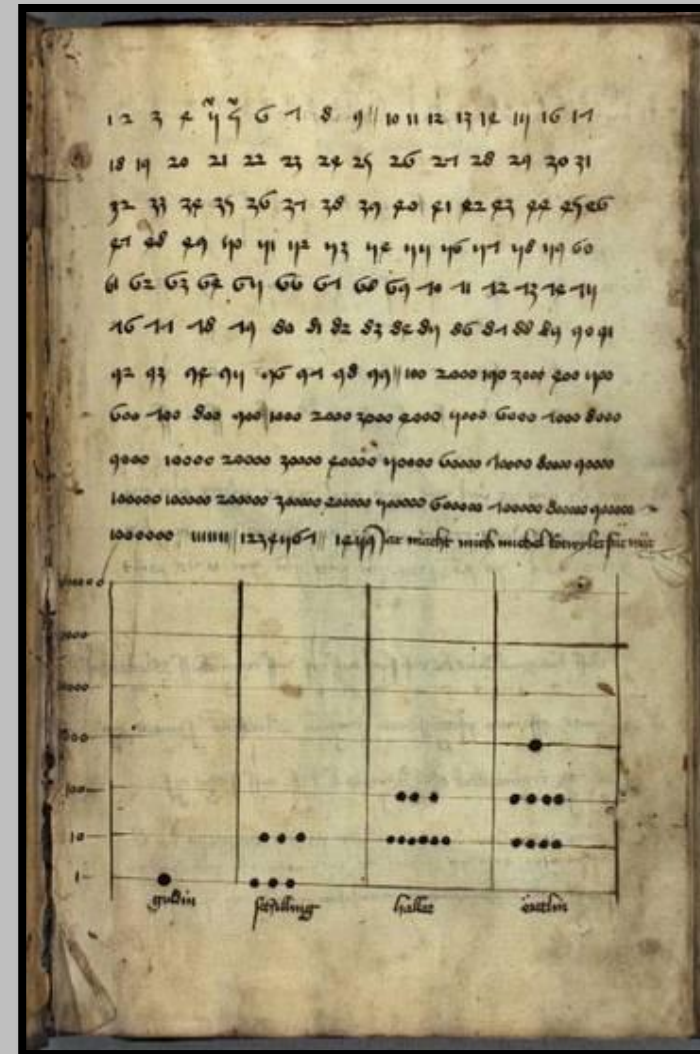 1 2 3 4 5 5 6 7 8 9 || 10 11 12 13 14 15 16 17
18 19 20 21 22 23 24 25 26 27 28 29 30 31
32 33 34 35 36 37 38 39 40 41 42 43 44 45 46
47 48 49 50 51 52 53 54 55 56 57 58 59 60
61 62 63 64 65 66 67 68 69 70 71 72 73 74 75
76 77 78 79 80 81 82 83 84 85 86 87 88 89 90 91
92 93 94 95 96 97 98 99 || 100 2000 3000 400 500
600 700 800 900 1000 2000 3000 4000 5000 6000 7000 8000
9000 10000 20000 30000 40000 50000 60000 70000 80000 90000
100000 100000 200000 300000 400000 500000 600000 700000 800000 900000
1000000 111111 1234567 macht mich michel
100
10
1
guldin schilling haller